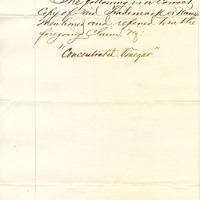 The following is a Correct
Copy of said Trademark or Name
mentioned and referred to in the
foregoing Claim to:
"Concentrated Vinegar"